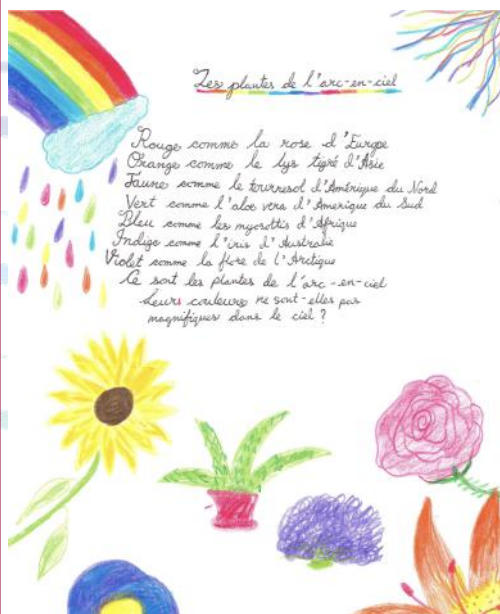 Les plantes de l'arc-en-ciel
Rouge comme la rose d'Europe
Orange comme le lys tigré d'Asie
Jaune comme le tournesol d'Amérique du Nord
Vert comme l'aloe vera d'Amerique du Sud
Bleu comme les myosotis d'Afrique
Indigo comme l'iris d'Australie
Violet comme la flore de l'Arctique
Ce sont les plantes de l'arc-en-ciel
Leurs couleurs ne sont-elles pas
magnifiques dans le ciel ?